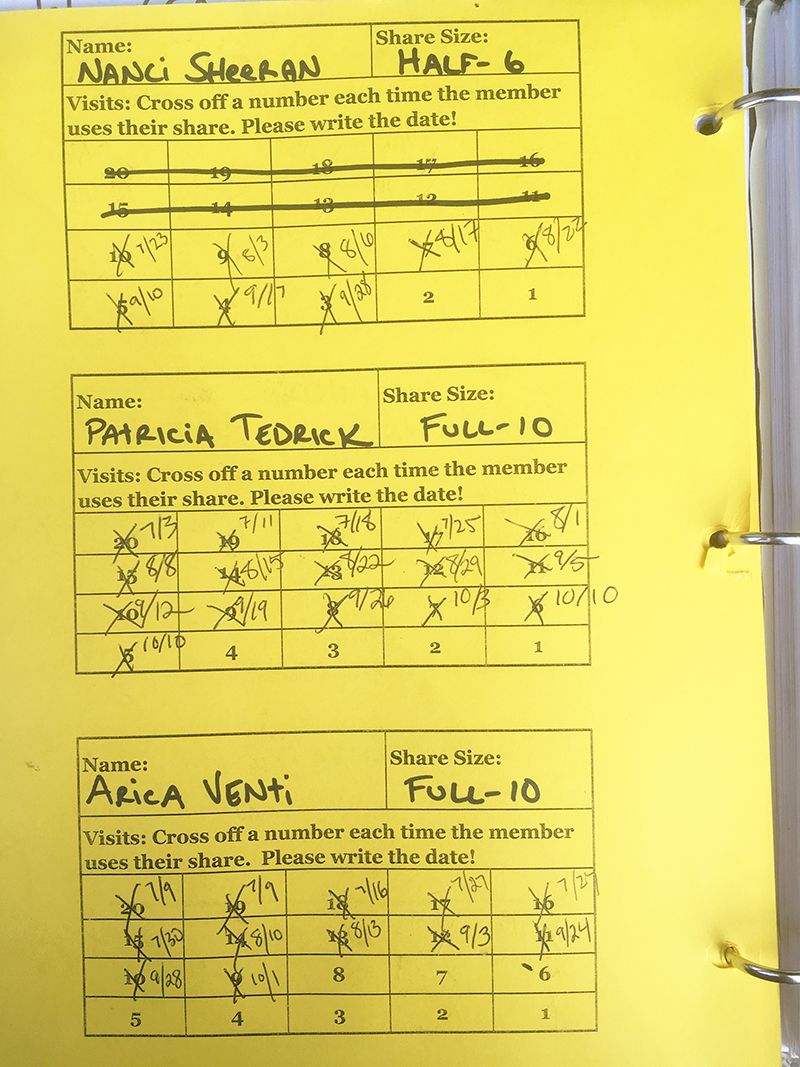 Name: Share Size:
NANCI SHEERAN HALF-6
Visits: Cross off a number each time the member
uses their share. Please write the date!
20 19 18 17 16
15 14 13 12 11
10 7/23 9 8/3 8 8/6 7 8/17 6 8/22
5 9/10 4 9/17 3 9/28 2 1
Name: Share Size:
PATRICIA TEDRICK FULL-10
Visits: Cross off a number each time the member
uses their share. Please write the date!
20 7/3 19 7/11 18 7/18 17 7/25 16 8/1
15 8/8 14 8/15 13 8/22 12 8/29 11 9/5
10 9/12 9 9/19 8 9/26 7 10/3 6 10/10
5 10/10 4 3 2 1
Name: Share Size:
ARICA VENTI FULL-10
Visits: Cross off a number each time the member
uses their share. Please write the date!
20 7/9 19 7/9 18 7/16 17 7/27 16 7/27
15 7/30 14 8/10 13 8/13 12 9/3 11 9/24
10 9/28 9 10/1 8 7 6
5 4 3 2 1